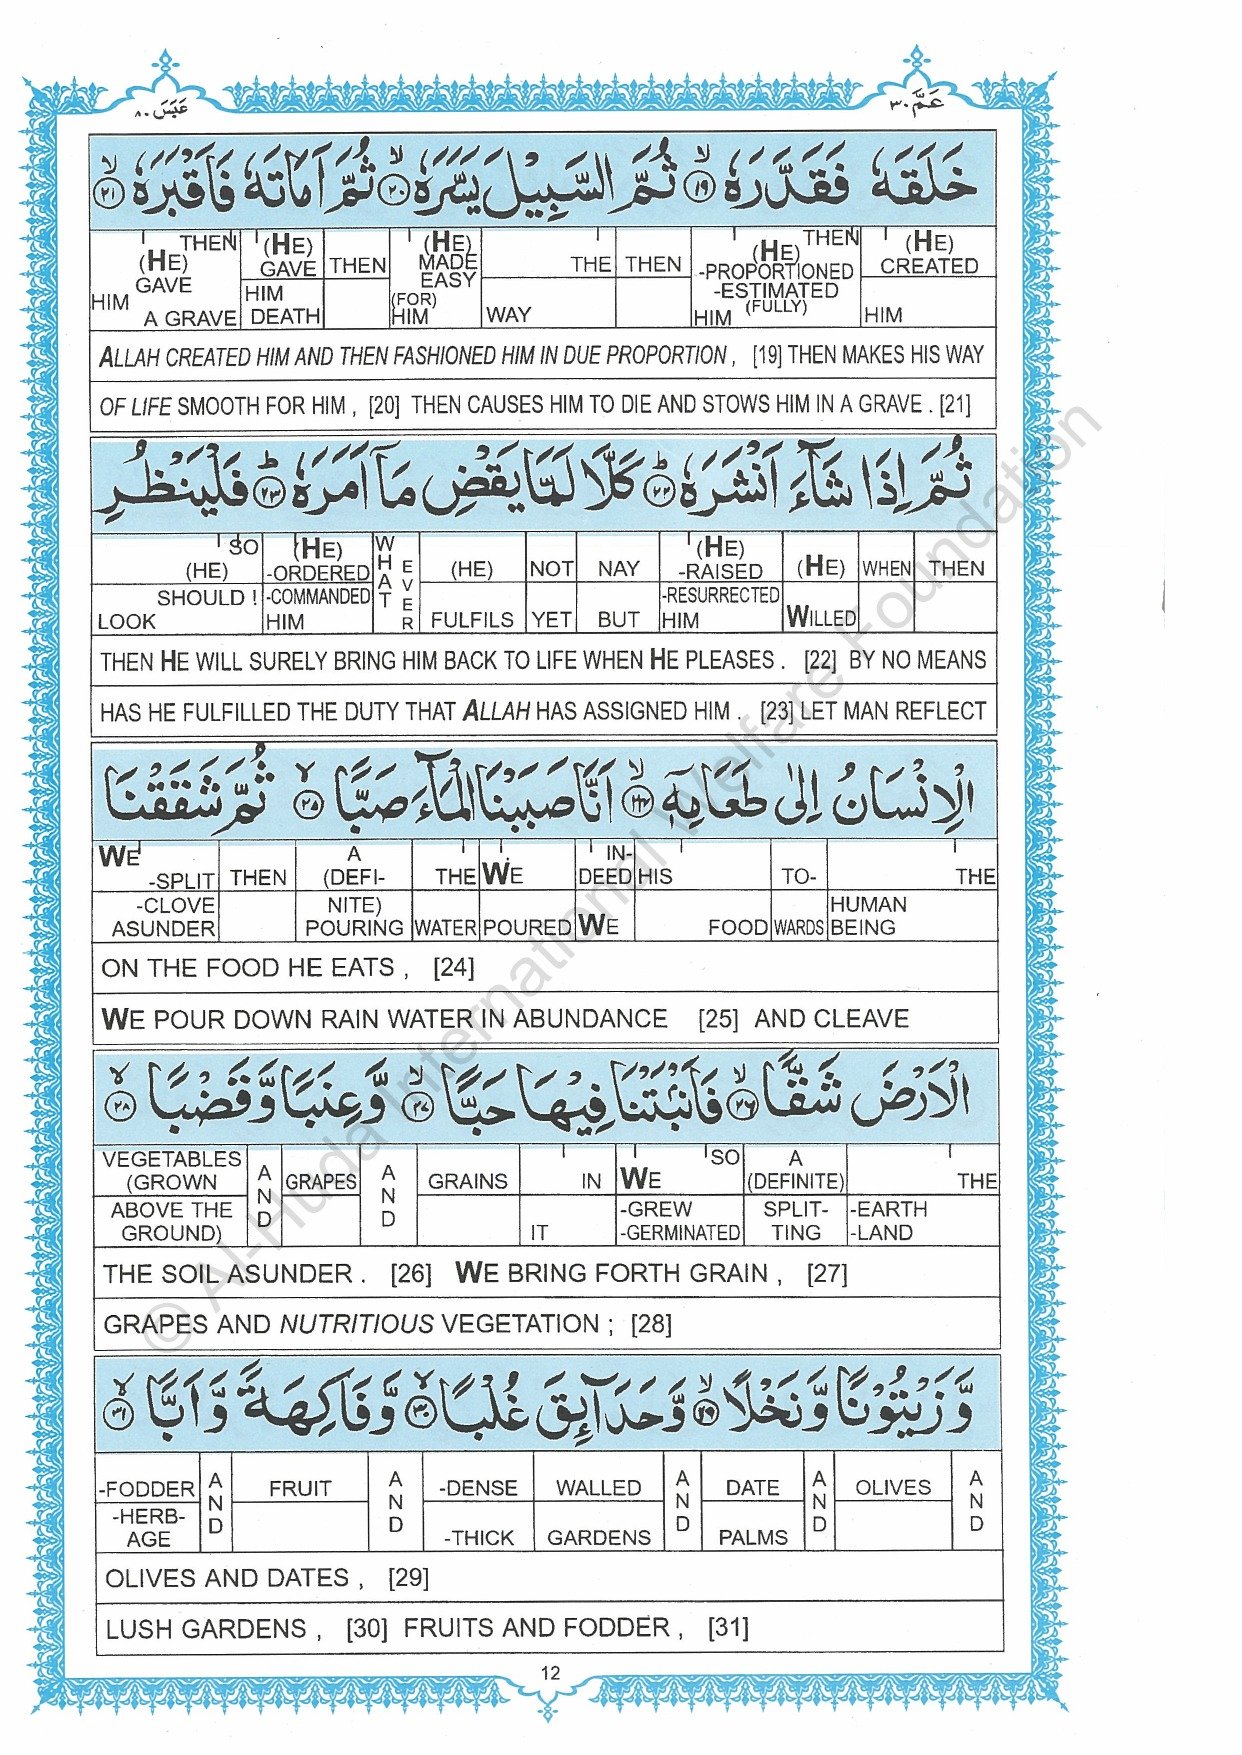 عَبَسَ ٨٠
عَمَّ ٣٠
خَلَقَهٗ فَقَدَّرَهٗ ﴿١٩﴾ ثُمَّ السَّبِيْلَ يَسَّرَهٗ ﴿٢٠﴾ ثُمَّ اَمَاتَهٗ فَاَقْبَرَهٗ ﴿٢١﴾
THEN (HE) GAVE HIM A GRAVE | (HE) GAVE HIM DEATH | THEN | (HE) MADE EASY (FOR) HIM | THE WAY | THEN | THEN (HE) -PROPORTIONED -ESTIMATED (FULLY) HIM | (HE) CREATED HIM
ALLAH CREATED HIM AND THEN FASHIONED HIM IN DUE PROPORTION , [19] THEN MAKES HIS WAY
OF LIFE SMOOTH FOR HIM , [20] THEN CAUSES HIM TO DIE AND STOWS HIM IN A GRAVE . [21]
ثُمَّ اِذَا شَآءَ اَنْشَرَهٗ ﴿٢٢﴾ كَلَّا لَمَّا يَقْضِ مَآ اَمَرَهٗ ﴿٢٣﴾ فَلْيَنْظُرِ
SO (HE) SHOULD ! LOOK | (HE) -ORDERED -COMMANDED HIM | WHAT EVER | (HE) FULFILS | NOT YET | NAY BUT | (HE) -RAISED -RESURRECTED HIM | (HE) WILLED | WHEN | THEN
THEN HE WILL SURELY BRING HIM BACK TO LIFE WHEN HE PLEASES . [22] BY NO MEANS
HAS HE FULFILLED THE DUTY THAT ALLAH HAS ASSIGNED HIM . [23] LET MAN REFLECT
الْاِنْسَانُ اِلٰى طَعَامِهٖٓ ﴿٢٤﴾ اَنَّا صَبَبْنَا الْمَآءَ صَبًّا ﴿٢٥﴾ ثُمَّ شَقَقْنَا
WE -SPLIT -CLOVE ASUNDER | THEN | A (DEFI- NITE) POURING | THE WATER | WE POURED | IN- DEED WE | HIS FOOD | TO- WARDS | THE HUMAN BEING
ON THE FOOD HE EATS , [24]
WE POUR DOWN RAIN WATER IN ABUNDANCE [25] AND CLEAVE
الْاَرْضَ شَقًّا ﴿٢٦﴾ فَاَنْۢبَتْنَا فِيْهَا حَبًّا ﴿٢٧﴾ وَّعِنَبًا وَّقَضْبًا ﴿٢٨﴾
VEGETABLES (GROWN ABOVE THE GROUND) | AND | GRAPES | AND | GRAINS | IN IT | SO WE -GREW -GERMINATED | A (DEFINITE) SPLIT- TING | THE -EARTH -LAND
THE SOIL ASUNDER . [26] WE BRING FORTH GRAIN , [27]
GRAPES AND NUTRITIOUS VEGETATION ; [28]
وَّزَيْتُوْنًا وَّنَخْلًا ﴿٢٩﴾ وَّحَدَآئِقَ غُلْبًا ﴿٣٠﴾ وَّفَاكِهَةً وَّاَبًّا ﴿٣١﴾
-FODDER -HERB- AGE | AND | FRUIT | AND | -DENSE -THICK | WALLED GARDENS | AND | DATE PALMS | AND | OLIVES | AND
OLIVES AND DATES , [29]
LUSH GARDENS , [30] FRUITS AND FODDER , [31]
12
© Al-Huda International Welfare Foundation